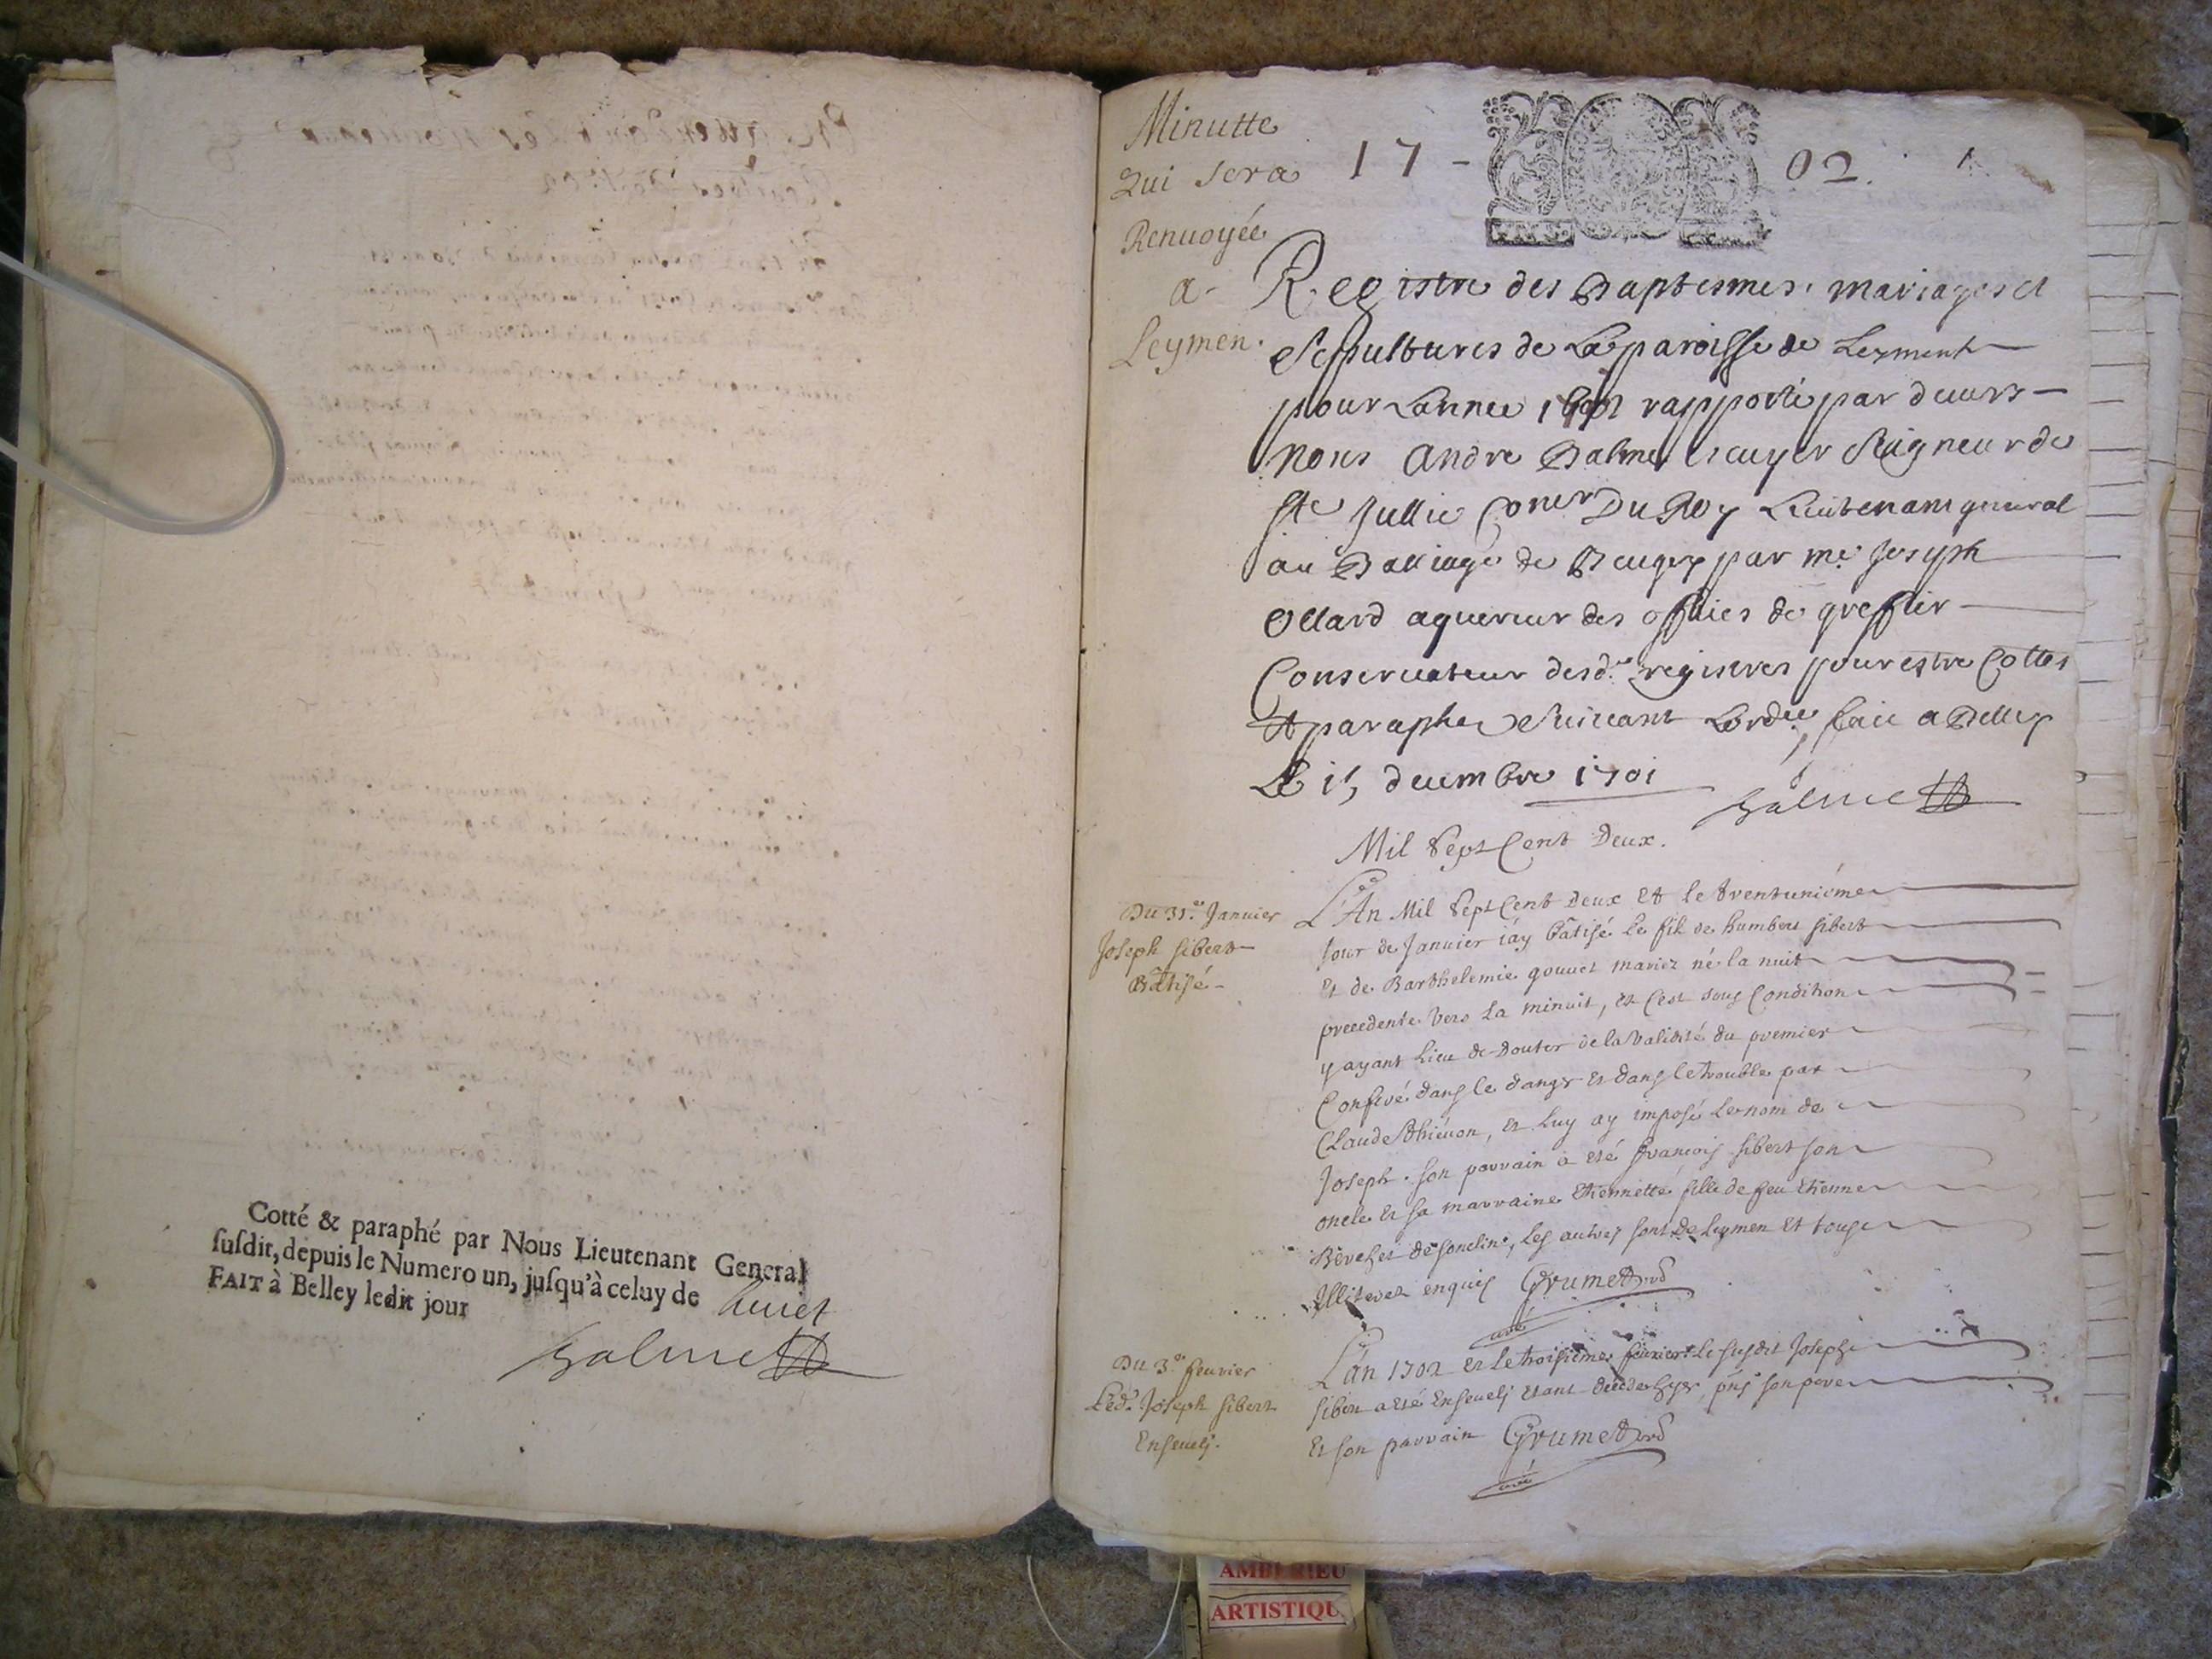 Cotté & paraphé par Nous Lieutenant General
susdit, depuis le Numero un, jusqu'à celuy de huict
FAIT à Belley ledit jour
Balme
Minutte
qui sera
Renuoyée
a
Leymen.
17 - 02. 1
Registre des Baptesmes, mariages et
Sepultures de La paroisse de Leyment
pour Lannee 1702 rapporté par deuers
nous Andre Balme escuyer Seigneur de
Ste Jullie Coner Du Roy Lieutenant general
au Balliage de Beugey par me Joseph
Ollard aquereur des offices de greffier
Conseruateur desd. registres pour estre Cottes
Et paraphe Suiuant Lordce, faict a Belley
Le 15 decembre 1701
Balme
Mil Sept Cent Deux.
Du 31e Januier
Joseph sibert
Batisé
L'An Mil Sept Cent Deux Et le trentuniéme
Jour de Januier iáy batisé le fils de humbert sibert
Et de Barthelemie gouuet mariez né la nuit
precedente Vers la minuit, et C'est sous Condition
y ayant Lieu de Douter de la Validité du premier
Conferé dans le danger et dans le trouble par
Claude Théuon, et Luy ay imposé le nom de
Joseph. son parrain a été francois sibert son
oncle et sa marraine Etiennette fille de feu Etienne
de , les autres sont de Leymen Et tous
Illiterez enquis Grumet
curé
Du 3e feurier
Led. Joseph sibert
Enseueli.
L'an 1702 et le troisième feurier le susdit Joseph
sibert a été Enseueli étant décédé hyer, pns son pere
Et son parrain Grumet
curé
AMBERIEU
ARTISTIQU